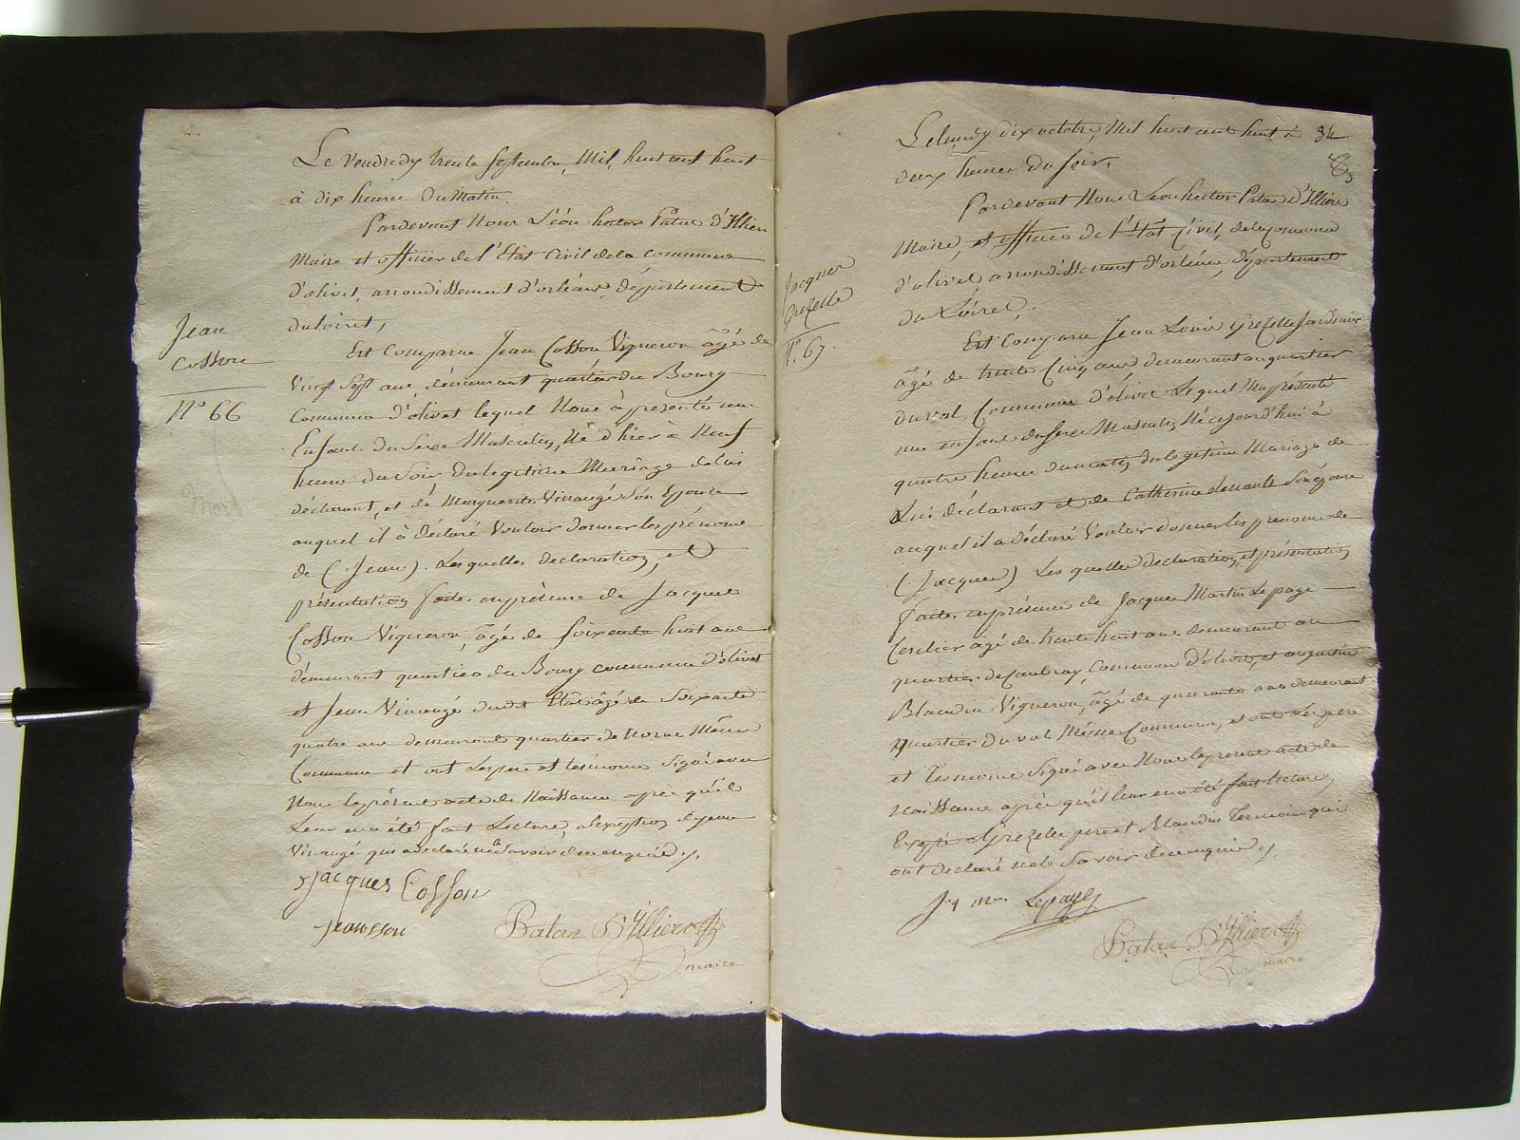 Le Vendredy trente Septembre, Mil, huit cent huit
à dix heures Du Matin.
Pardevant Nous Léon hector Patas d'Illiers
Maire et officier de l'Etat Civil de la commune
d'olivet, arrondissement d'orléans, département
du loiret,
Jean
Cosson
N° 66
Est Comparu Jean Cosson Vigneron âgé de
Vingt Sept ans, demeurant quartier du Bourg
Commune d'olivet lequel Nous à presentés un
Enfant du Sexe Masculin, Né d'hier à Neuf
heures du Soir, du legitime Mariage de lui
déclarant, et de Marguerite Viraugé Son Epouse
auquel il à déclaré Vouloir donner les prénoms
de (Jean). Lesquelles declaration, et
présentation faites en présence de Jacques
Cosson Vigneron, âgé de soixante huit ans
demeurant quartier du Bourg commune d'olivet
et Jean Viraugé âgé de Soixante
quatre ans demeurant quartier de Même
Commune et ont Les pere et temoins Signé avec
Nous le présent acte de Naissance après qu'il
Leur en a été fait Lecture, a l'exception de Jean
Viraugé qui a declaré ne Savoir de ce enquis ./.
Jacques Cosson
jean cosson
Patas D'Illiers
maire
34
Le lundy dix octobre, Mil huit cent huit à
deux heures du soir,
Pardevant Nous Léon hector Patas d'Illiers
Maire, et officier de l'Etat Civil, de la Commune
d'olivet, arrondissement d'orléans, département
du Loiret,
Jacques
Grezelle
N°. 67.
Est Comparu Jean Louis Grezelle Jardinier
âgé de trente Cinq ans demeurant au quartier
du val, Commune d'olivet Lequel Nous présenté
un enfant du Sexe Masculin, Né cejourd'hui à
quatre heures du matin, du legitime Mariage de
Lui déclarant et de Catherine Son épouse
auquel il a déclaré Vouloir donner les prenoms de
(Jacques) Lesquelles declaration, et présentation
faites en présence de Jacques Martin Lepage
âgé de trente huit ans demeurant au
quartier de Commune d'olivet, et augustin
Blandin Vigneron, âgé de quarante ans demeurant
quartier du val Même Commune, et ont Les pere
et temoins Signé avec Nous le present acte de
Naissance après qu'il leur en a été fait lecture,
Excepté Grezelle pere et Blandin temoin qui
ont declaré ne le Savoir de ce enquis ./.
Lepage
Patas D'Illiers
maire